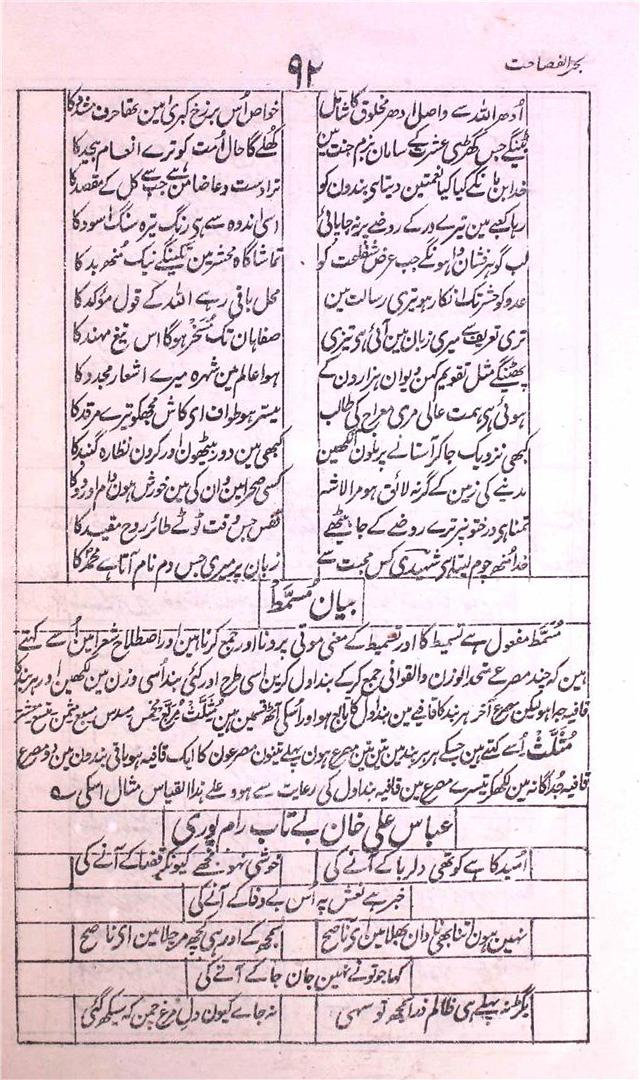 بحر الفصاحت
۹۲
اُدھر اللہ سے واصل ادھر مخلوق کا شامل خواص اُس برزخ کبریٰ مین تھا حرف مشدد کا
جس گھڑی عشرت کے سامان بزم جنت مین کھلے گا حال اُمت کو ترے انعام بیحد کا
خدا بن مانگے کیا کیا نعمتین دیتا ہی بندون کو ترا دست دعا ضامن ہے جب سے کل کے مقصد کا
رہا کعبے مین تیرے در کے روضے پر نہ جا پائی اسی اندوہ سے ہی رنگ تیرہ سنگ اسود کا
لب گوہر فشان وا ہونگے جب عرض شفاعت کو تماشا گاہ محشر مین تکینگے نیک منھ بد کا
عدو کو حشر تک انکار ہو تیری رسالت مین محل باقی رہے اللہ کے قول مؤکد کا
تری تعریف سے میری زبان مین آئی ہی تیزی صفاہان تک مسخر ہوگا اس تیغ مہند کا
مثل تقویم کہن دیوان ہزارون کے ہوا عالم مین شہرہ میرے اشعار مجدد کا
ہوئی ہی ہمت عالی مری معراج کی طالب میسر ہو طواف ای کاش مجھکو تیرے مرقد کا
کبھی نزدیک جاکر آستانے پر ملون آنکھین کبھی مین دور بیٹھون اور کرون نظارہ گنبد کا
مدینے کی زمین کے گر نہ لائق ہو مرا لاشہ کسی صحرا مین وان کی مین خورش ہون دام اور دد کا
تمنا ہی درختونپر ترے روضے کے جا بیٹھے قفس جس وقت ٹوٹے طائر روح مقید کا
خدا منھ چوم لیتا ہی شہیدی کس محبت سے زبان پر میری جس دم نام آتا ہے محمدؐ کا
بیان مُسمَّط
مُسمَّط مفعول ہے تسمیط کا اور تسمیط کے معنی موتی پرونا اور جمع کرنا ہین اور اصطلاح شعرا مین اُسے کہتے
ہین کہ چند مصرعے متحد الوزن والقوافی جمع کرکے بند اول کرین اسی طرح اور کئی بند اُسی وزن مین لکھین اور ہر بند کا
قافیہ جدا ہو لیکن مصرع آخر ہر بند کا قافیے مین بند اول کا تابع ہو اور اُسکی آٹھ قسمین ہین مُثلّث مربّع مخمّس مسدس مسبع مثمن متسع معشر
مُثلّث اُسے کہتے ہین جسکے ہر ہر بند مین تین تین مصرع ہون پہلے تینون مصرعون کا ایک قافیہ ہو باقی بندون مین دو مصرع
قافیہ جداگانہ مین لکھکر تیسرے مصرع مین قافیہ بند اول کی رعایت سے ہو وعلے ہذا القیاس مثال اسکی ے
عباس علی خان بے تاب رام پوری
اُمید کا ہے کو تھی دلربا کے آنے کی خوشی نہو مجھے کیونکر قضا کے آنے کی
خبر ہے نعش پہ اُس بے وفا کے آنے کی
نہین ہون اتنا بھی نادان بھلا مین ای ناصح سمجھ کے اور ہی کچھ مر چلا مین ای ناصح
کہا جو تونے نہین جان جا کے آنے کی
بگڑ نہ پہلے ہی ظالم ذرا سمجھ تو سہی نہ جاے کیون دل مرغ چمن کہ سیکھ گئی